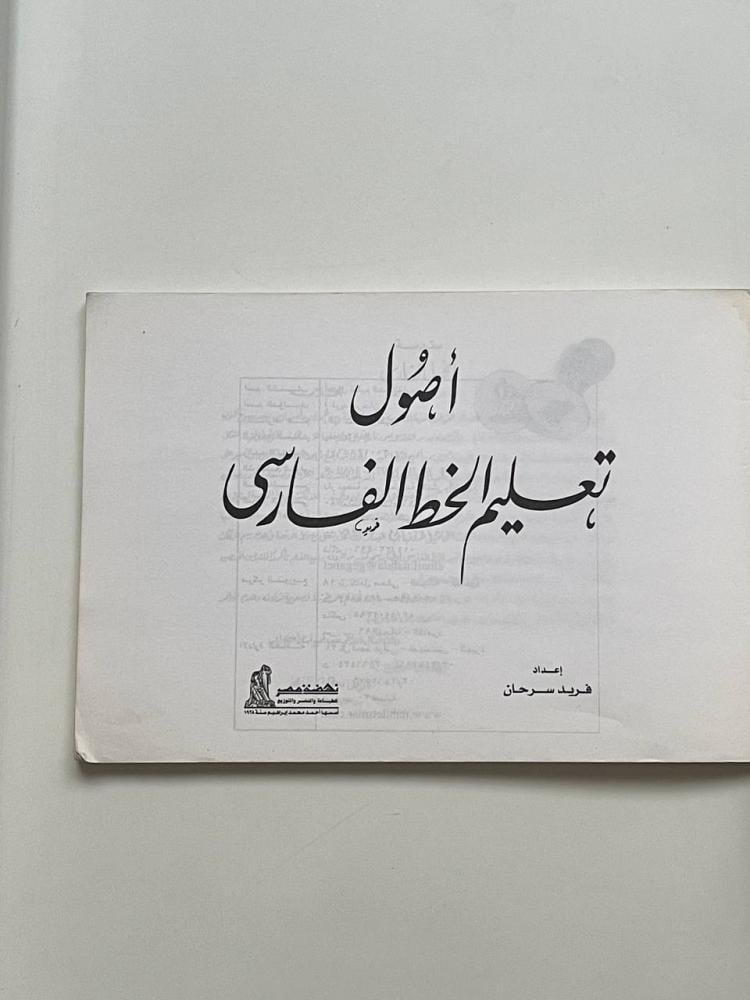 أصُول
تعليم الخط الفارسى
فريد
إعداد
فريد سرحان
نهضة مصر
للطباعة والنشر والتوزيع
أسسها أحمد محمد إبراهيم سنة ١٩٣٨